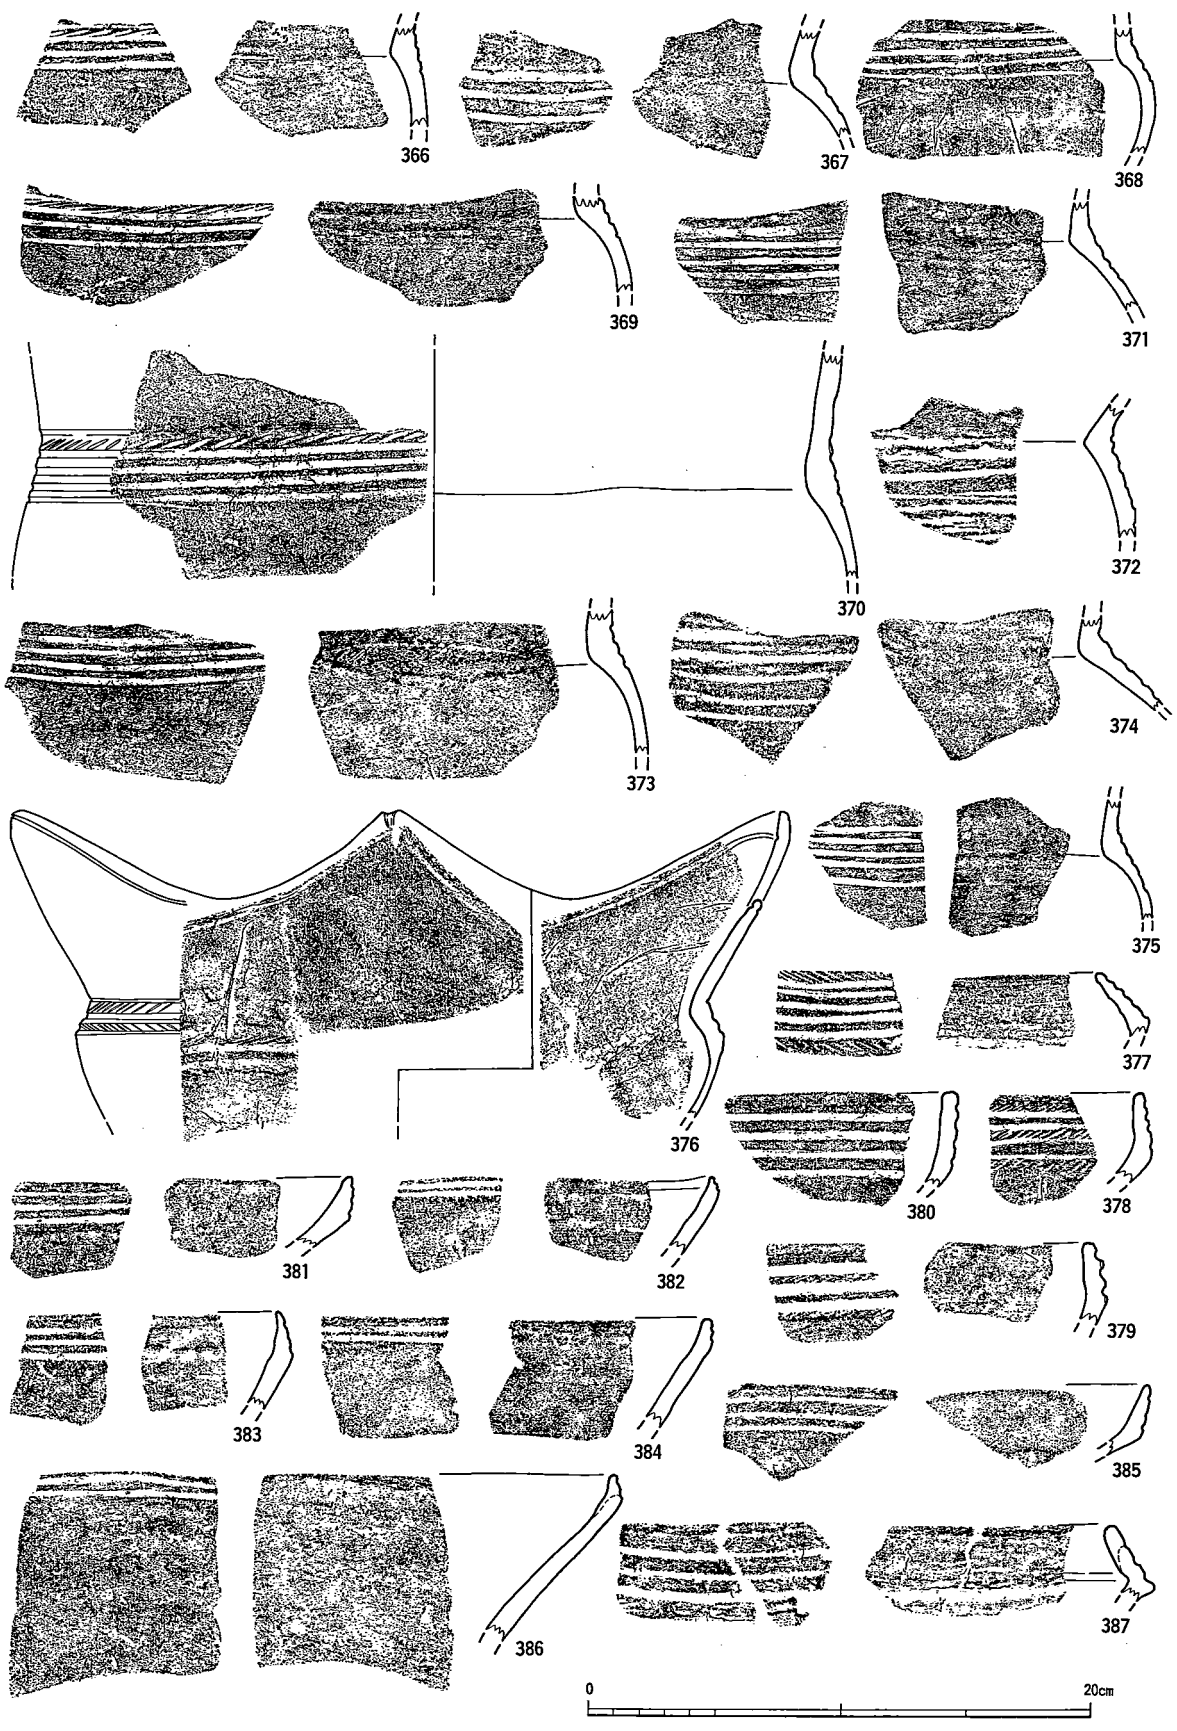 366
367
368
369
371
370
372
373
374
376
375
377
380
378
381
382
379
383
384
385
386
387
0 20cm